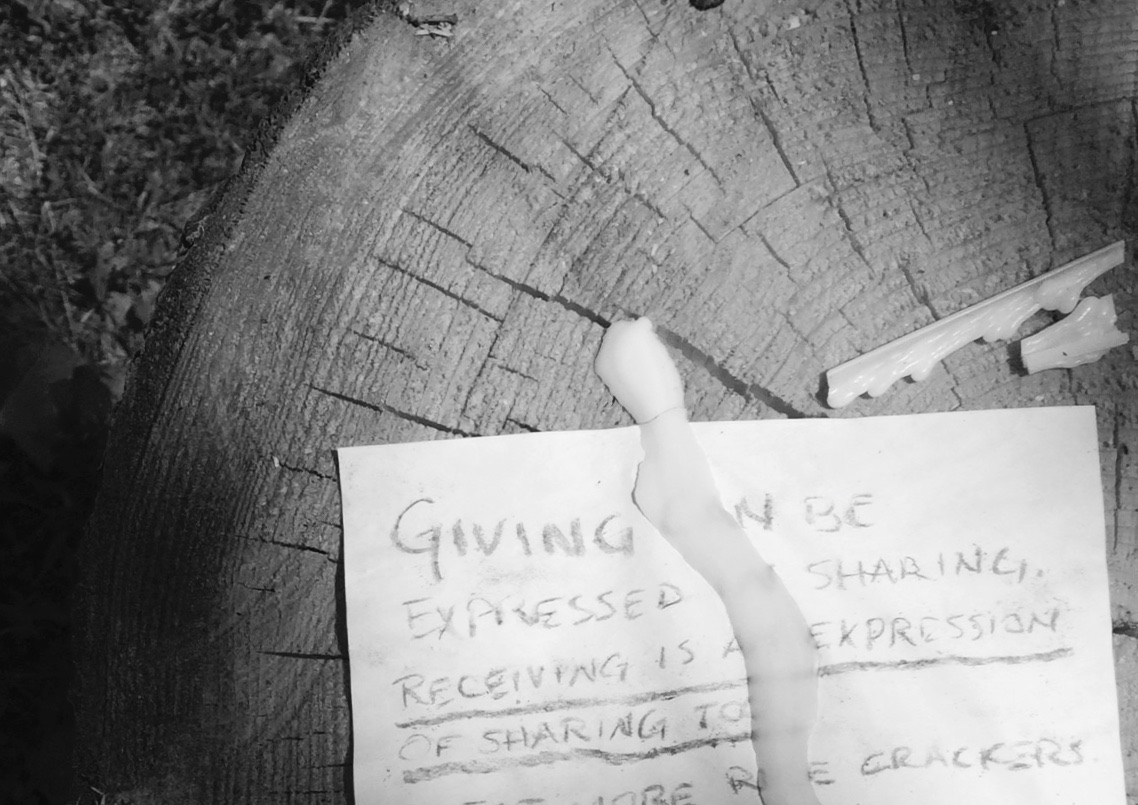 GIVING N BE
EXPRESSED SHARING.
RECEIVING IS A EXPRESSION
OF SHARING TO
MORE CRACKERS.